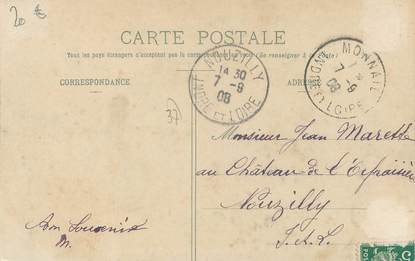 20 €
CARTE POSTALE
Tous les pays étrangers n'acceptent pas la correspondance
CORRESPONDANCE
ADRES
NOUZILLY
14 30
7 -9
08
INDRE ET LOIRE
MONNAIE
7 -9
08
LOIRE
37
Monsieur Jean Marotte
au Château de l'
Nouzilly
I. & L.
Bon Souvenir
M.